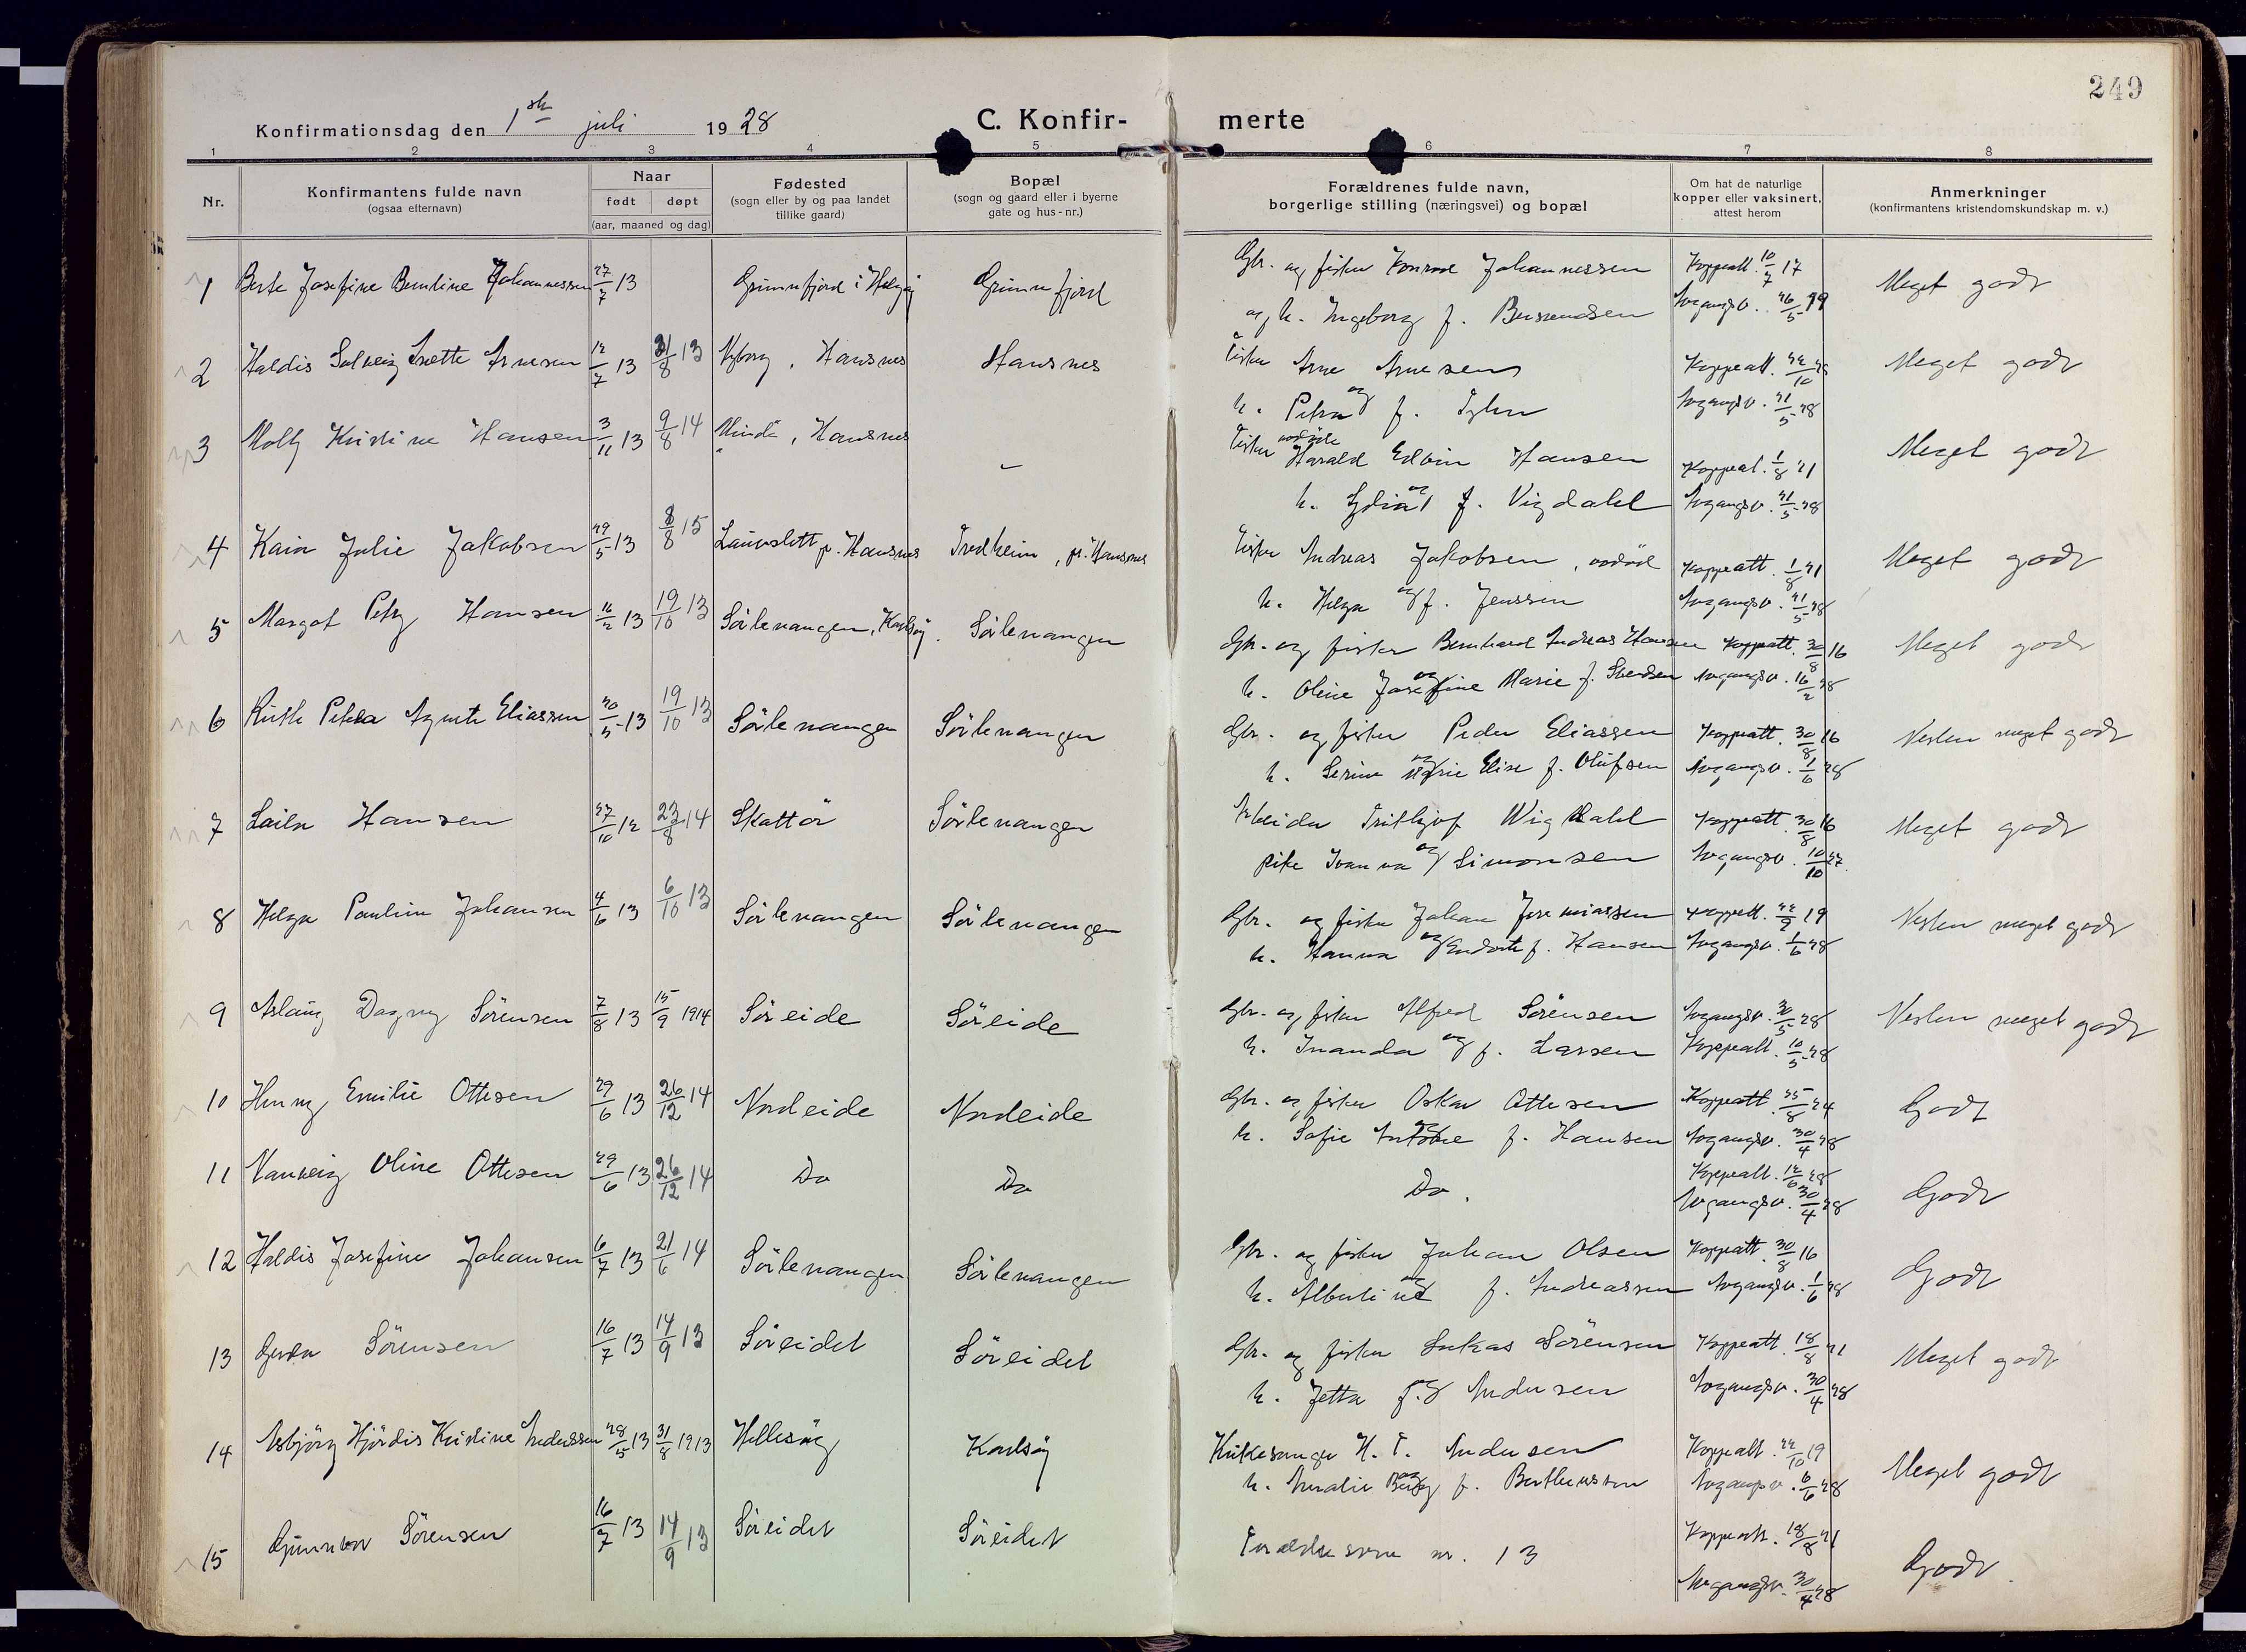 249
Konfirmationsdag den 1ste juli 1928
C. Konfir- merte
1 2 3 4 5 6 7 8
Nr.
Konfirmantens fulde navn
(ogsaa efternavn)
Naar
født døpt
(aar, maaned og dag)
Fødested
(sogn eller by og paa landet
tillike gaard)
Bopæl
(sogn og gaard eller i byerne
gate og hus-nr.)
Forældrenes fulde navn,
borgerlige stilling (næringsvei) og bopæl
Om hat de naturlige
kopper eller vaksinert,
attest herom
Anmerkninger
(konfirmantens kristendomskundskap m. v.)
1 Josefine Johannessen 27/7 13 Grunnfjord i Helgøy Grunnfjord Gbr. og fisker Konrad Johannessen Koppeatt. 10/7 17 Meget godt
og h. Ingeborg f. Berntsen Avgangsv. 26/5
2 Haldis Solveig Anette Arnesen 12/7 13 31/8 13 Nyborg, Hansnes Hansnes Fisker Arne Arnesen Koppeatt. Meget godt
og
h. Petra f. Avgangsv. 21/5 28
3 Molly Kristine Hansen 3/11 13 9/8 14 Minde, Hansnes – Fisker Harald Edvin Hansen Koppeat. 1/8 21 Meget godt
og
h. Lydia f. Vigdahl Avgangsv. 21/5 28
4 Karin Julie Jakobsen 29/5 13 8/8 15 p. Hansnes Tredheim, p. Hansnes Fisker Andreas Jakobsen, Koppeatt. 1/8 21 Meget godt
h. Helga og f. Jenssen Avgangsv. 21/5 28
5 Margot Petry Hansen 16/2 13 19/10 13 Sörlenangen, Karlsøy. Sörlenangen Gbr. og fisker Bernhard Andreas Hansen Koppatt. 30/8 16 Meget godt
og
h. Oline Josefine Marie f. Avgangsv. 16/2 28
6 Ruth Petra Agnete Eliassen 20/5 13 19/10 13 Sörlenangen Sörlenangen Gbr. og fisker Peder Eliassen Koppeatt. 30/8 16 Nesten meget godt
og
h. Serine Marie Elise f. Olufsen Avgangsv. 1/6 28
7 Laila Hansen 27/10 12 23/8 14 Skattör Sörlenangen Arbeider Fritjof Wigdahl Koppeatt. 30/8 16 Meget godt
pike og Simonsen Avgangsv. 10/10 27
8 Helga Pauline Johansen 4/6 13 6/10 13 Sörlenangen Sörlenangen Gbr. og fisker Johan Jeremiassen Koppeatt. 22/9 19 Nesten meget godt
h. Hanna og f. Hansen Avgangsv. 1/6 28
9 Aslaug Dagny Sörensen 7/8 13 15/9 1914 Söreide Söreide Gbr. og fisker Alfred Sörensen Avgangsv. 30/5 28 Nesten meget godt
h. og f. Larsen Koppeatt. 10/5 28
10 Henny Emilie Ottesen 29/6 13 26/12 14 Nordeide Nordeide Gbr. og fisker Oskar Ottesen Koppeatt. 25/8 24 Godt
h. Sofie Antonie f. Hansen Avgangsv. 30/4 28
11 Vanveig Oline Ottesen 29/6 13 26/12 14 Do Do Do. Koppeatt. 12/6 28 Godt
Avgangsv. 30/4 28
12 Haldis Josefine Johansen 6/7 13 21/6 14 Sörlenangen Sörlenangen Gbr. og fisker Johan Olsen Koppeatt. 30/8 16 Godt
og
h. Albertine f. Andreassen Avgangsv. 1/6 28
13 Gerda Sörensen 16/7 13 14/9 13 Söreidet Söreidet Gbr. og fisker Lukas Sörensen Koppeatt. 18/8 21 Meget godt
h. Jetta og f. Andersen Avgangsv. 30/4 28
14 Asbjörg Hjördis Kristine Anderssen 28/5 13 31/8 1913 Hellesøy Karlsøy Kirkesanger H. T. Andersen Koppeatt. 22/10 19 Meget godt
h. Amalie Berg f. Avgangsv. 6/6 28
15 Gunnvor Sörensen 16/7 13 14/9 13 Söreidet Söreidet Forældre som nr. 13 Koppeatt. 18/8 21 Godt.
Avgangsv. 30/4 28